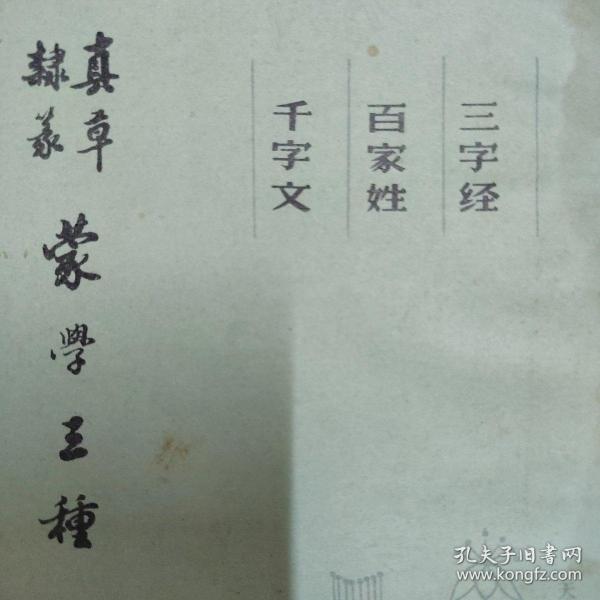 三字经
百家姓
千字文
真草
隸篆
蒙学三種
孔夫子旧書网
www.kongfz.com
天